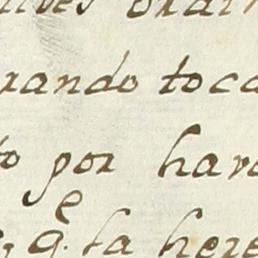 rando toca
to por hav
e
q. la here